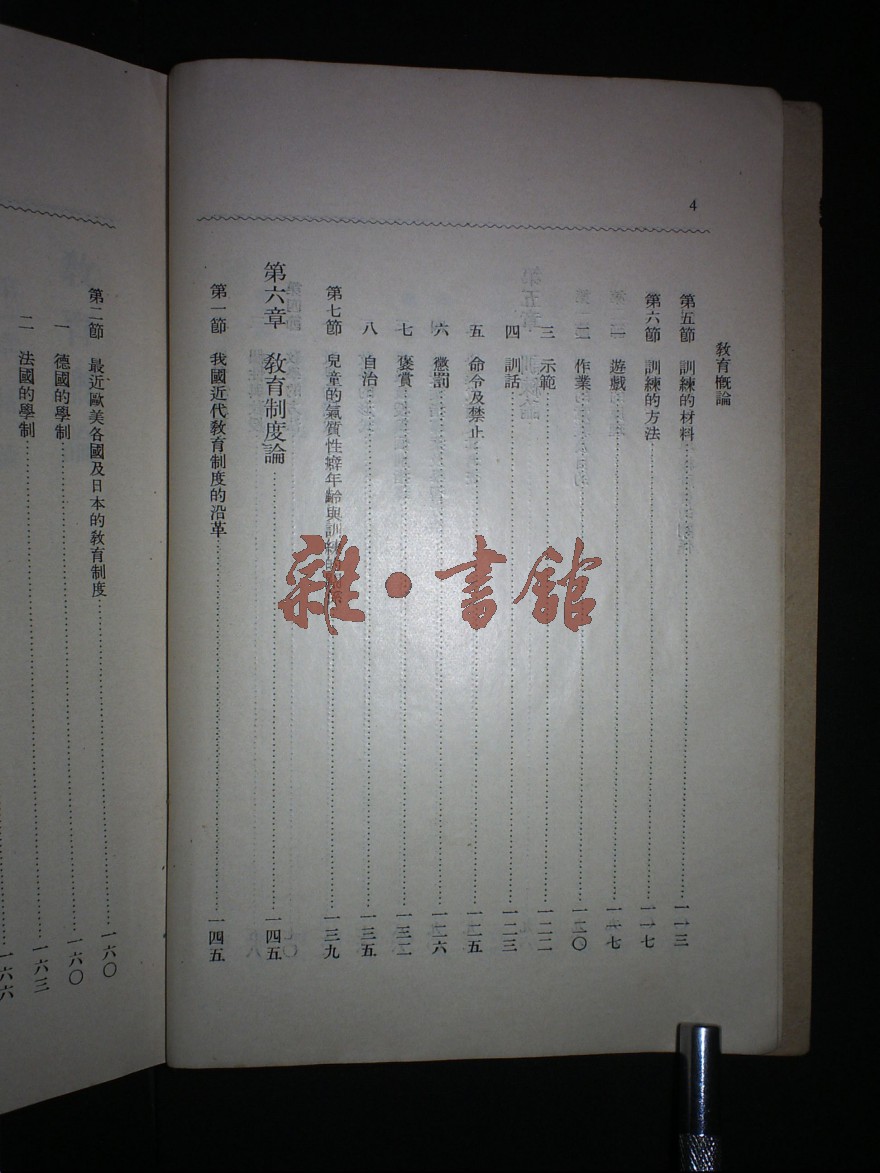 4
教育概論
第五節 訓練的材料……一一三
第六節 訓練的方法……一一七
一 遊戲……一一七
二 作業……一二〇
三 示範……一二二
四 訓話……一二三
五 命令及禁止……一二五
六 懲罰……一二六
七 褒賞……一三二
八 自治……一三五
第七節 兒童的氣質性癖年齡與訓練的……一三九
第六章 教育制度論……一四五
第一節 我國近代教育制度的沿革……一四五
第二節 最近歐美各國及日本的教育制度……一六〇
一 德國的學制……一六〇
二 法國的學制……一六三
一六六
雜·書館